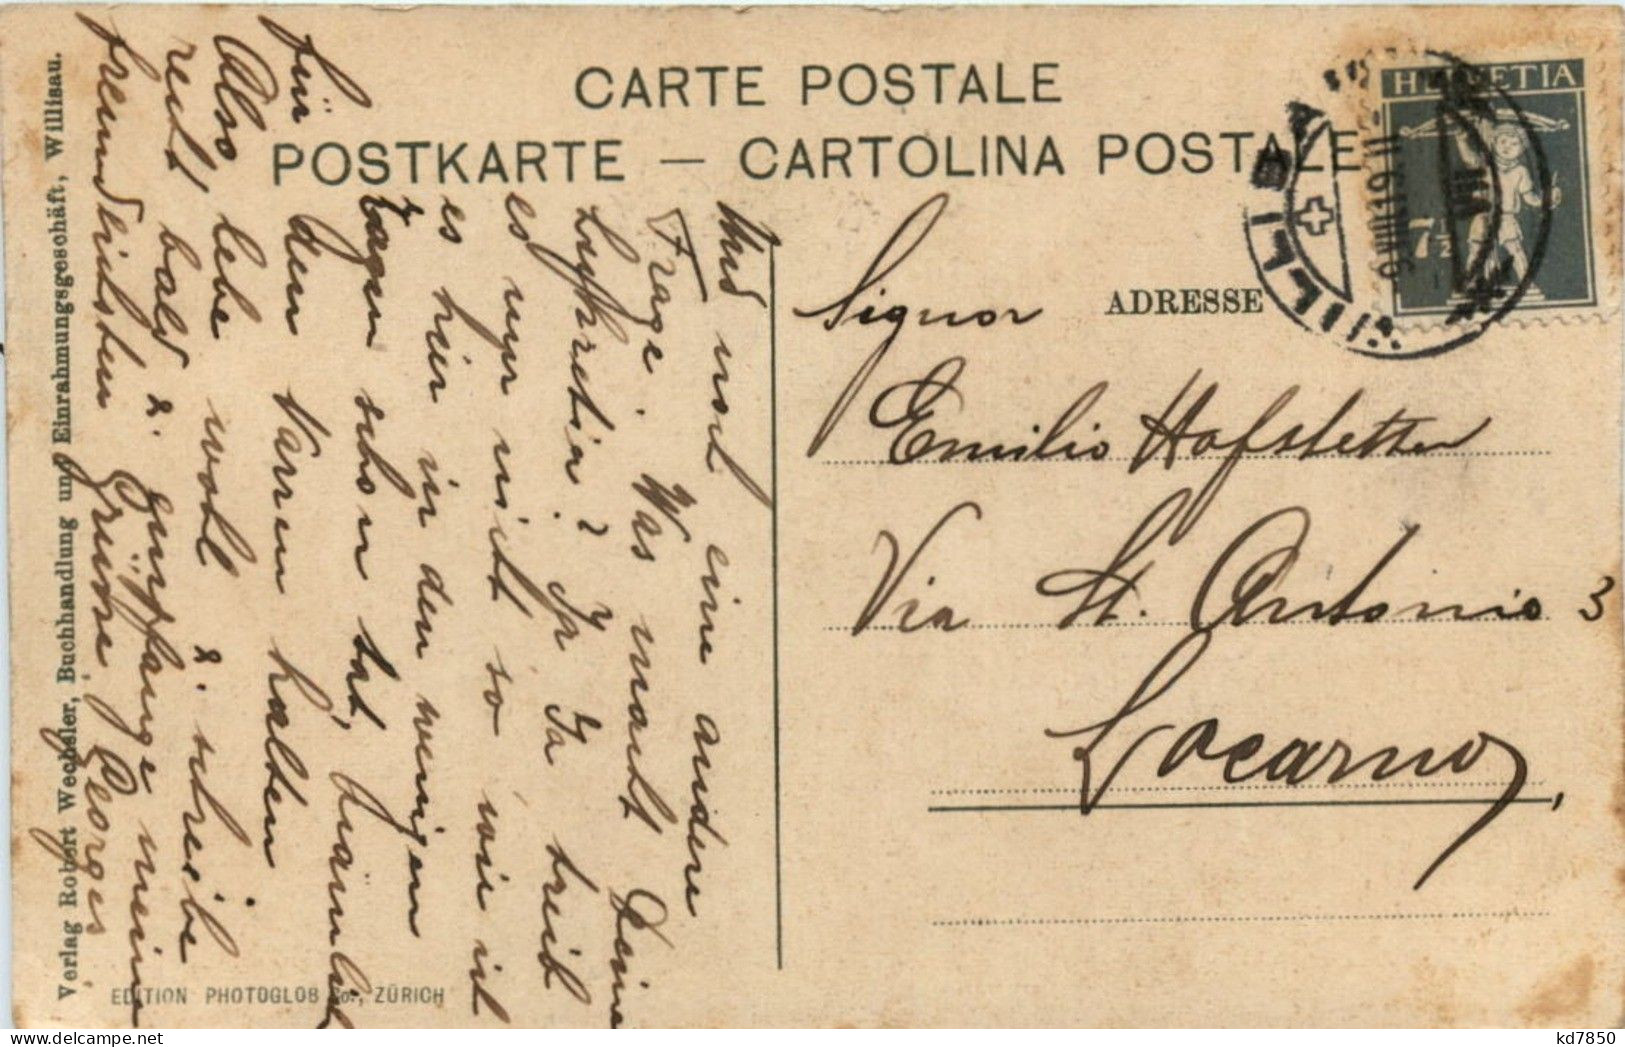 CARTE POSTALE
POSTKARTE — CARTOLINA POSTALE
ADRESSE
HELVETIA
7½
WILLISAU
Signor
Emilio Hofstetter
Via St. Antonio 3
Locarno,
Und noch eine andere
Frage. Was macht Deine
Lukretia? Ja Ja treib
es nur nicht so wie ich
es hier in den wenigen
Tagen schon tat, nämlich
für den Narren halten
Also lebe wohl & schreibe
recht bald & empfange meine
freundlichsten Grüsse Georges
Verlag Robert Wechsler, Buchhandlung und Einrahmungsgeschäft, Willisau.
EDITION PHOTOGLOB Co., ZÜRICH
kd7850